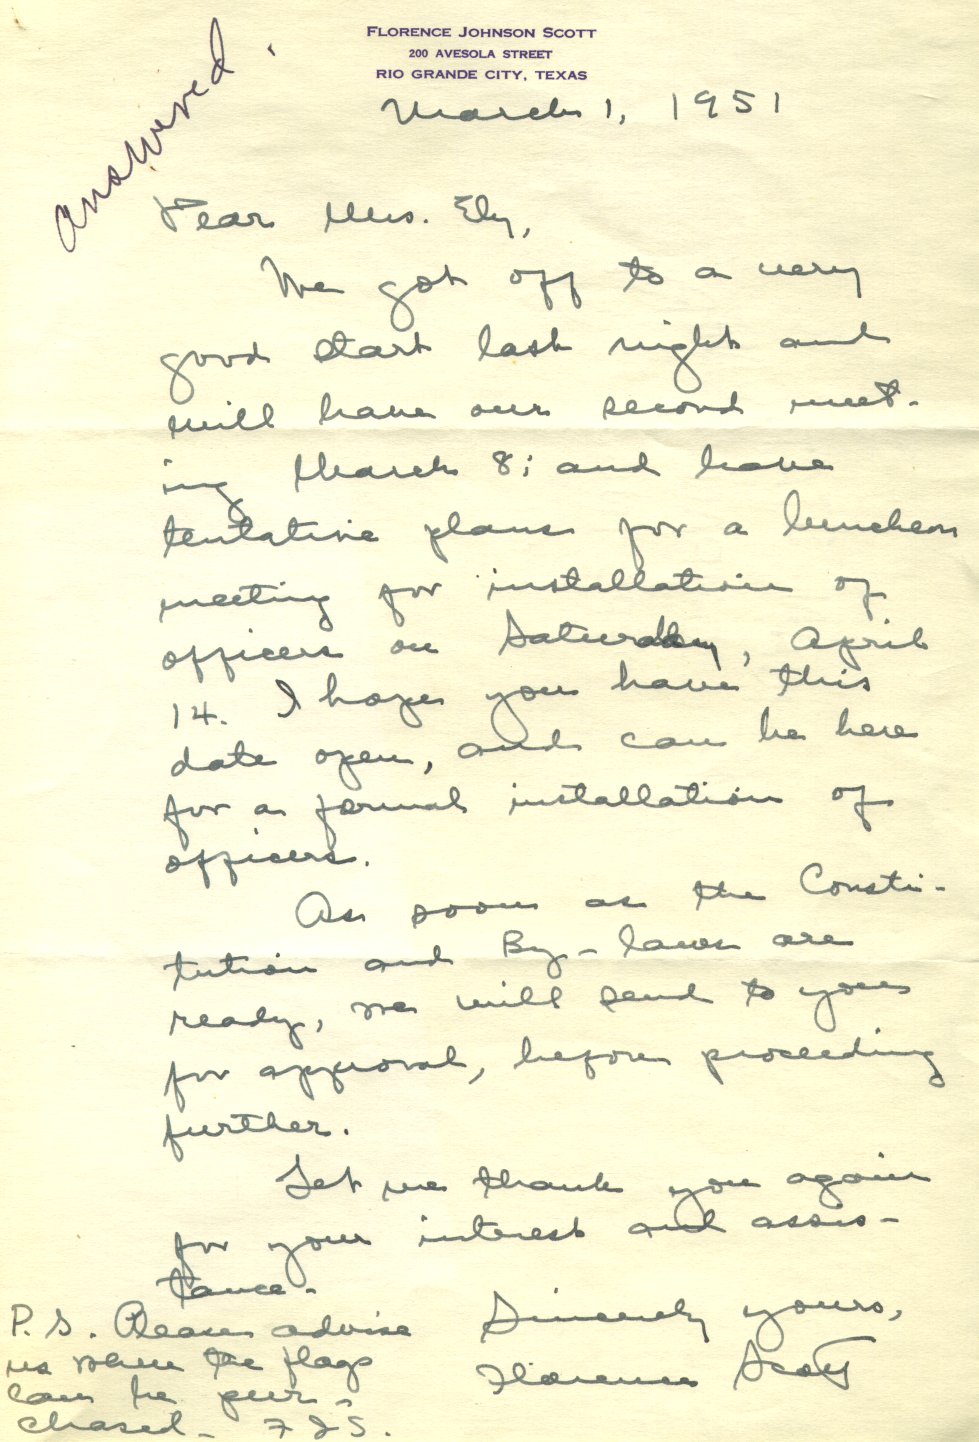 FLORENCE JOHNSON SCOTT
200 AVESOLA STREET
RIO GRANDE CITY, TEXAS
answered.
March 1, 1951
Dear Mrs. Ely,
We got off to a very
good start last night and
will have our second meet-
ing March 8; and have
tentative plans for a luncheon
meeting for installation of
officers on Saturday, April
14. I hope you have this
date open, and can be here
for a formal installation of
officers.
As soon as the Consti-
tution and By-laws are
ready, we will send to you
for approval, before proceeding
further.
Let me thank you again
for your interest and assis-
tance.
Sincerely yours,
Florence Scott
P.S. Please advise
us where the flags
can be pur-
chased. FJS.